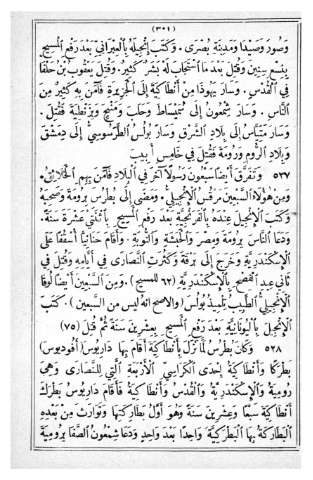 (٣٥١)
وَصُورَ وَصَيْدَا وَمَدِينَةِ بُصْرَى . وَكَتَبَ إِنْجِيلَهُ بِالْعِبْرَانِيِّ بَعْدَ رَفْعِ الْمَسِيحِ
بِتِسْعِ سِنِينَ وَقُتِلَ بَعْدَ مَا اسْتَجَابَ لَهُ بَشَرٌ كَثِيرٌ. وَقُتِلَ يَعْقُوبُ بْنُ حَلْفَا
فِي الْقُدْسِ . وَسَارَ يَهُوذَا مِنْ أَنْطَاكِيَةَ إِلَى الْجَزِيرَةِ فَآمَنَ بِهِ كَثِيرٌ مِنَ
النَّاسِ . وَسَارَ شِمْعُونُ إِلَى سُمَيْسَاطَ وَحَلَبَ وَمَنْبِجَ وَبِزَنْطِيَةَ فَقُتِلَ .
وَسَارَ مَتْيَاسُ إِلَى بِلَادِ الشَّرْقِ وَسَارَ بُولُسُ الطَّرْسُوسِيُّ إِلَى دِمَشْقَ
وَبِلَادِ الرُّومِ وَرُومِيَةَ فَقُتِلَ فِي خَامِسِ أَبِيبَ
٥٣٧ وَتَفَرَّقَ أَيْضًا سَبْعُونَ رَسُولًا آخَرَ فِي الْبِلَادِ فَآمَنَ بِهِمِ الْخَلَائِقُ .
وَمِنْ هٰؤُلَاءِ السَّبْعِينَ مَرْقُسُ الْإِنْجِيلِيُّ. وَمَضَى إِلَى بُطْرُسَ بِرُومِيَةَ وَصَحِبَهُ
وَكَتَبَ الْإِنْجِيلَ عِنْدَهُ بِالْفِرَنْجِيَّةِ بَعْدَ رَفْعِ الْمَسِيحِ بِاثْنَتَيْ عَشْرَةَ سَنَةً.
وَدَعَا النَّاسَ بِرُومِيَةَ وَمِصْرَ وَالْحَبَشَةِ وَالنُّوبَةِ . وَأَقَامَ حَنَانِيَا أُسْقُفًا عَلَى
الْإِسْكَنْدَرِيَّةِ وَخَرَجَ إِلَى بَرْقَةَ وَكَثُرَتِ النَّصَارَى فِي أَيَّامِهِ وَقُتِلَ فِي
ثَانِي عِيدِ الْفِصْحِ بِالْإِسْكَنْدَرِيَّةِ (٦٢ للمسيح) . وَمِنَ السَّبْعِينَ أَيْضًا لُوقَا
الْإِنْجِيلِيُّ الطَّبِيبُ تِلْمِيذُ بُولُسَ (والاصح انه ليس من السبعين) . كَتَبَ
الْإِنْجِيلَ بِالْيُونَانِيَّةِ بَعْدَ رَفْعِ الْمَسِيحِ بِعِشْرِينَ سَنَةً ثُمَّ قُتِلَ (٧٥)
٥٣٨ وَكَانَ بُطْرُسُ لَمَّا نَزَلَ بِأَنْطَاكِيَةَ أَقَامَ بِهَا دَارِيُوسَ (أفوديوس)
بَطْرَكًا وَأَنْطَاكِيَةُ إِحْدَى الْكَرَاسِيِّ الْأَرْبَعَةِ الَّتِي لِلنَّصَارَى وَهِيَ
رُومِيَةُ وَالْإِسْكَنْدَرِيَّةُ وَالْقُدْسُ وَأَنْطَاكِيَةُ فَأَقَامَ دَارِيُوسُ بَطْرَكَ
أَنْطَاكِيَةَ سَبْعًا وَعِشْرِينَ سَنَةً وَهُوَ أَوَّلُ بَطَارِكَتِهَا وَتَوَارَثَ مِنْ بَعْدِهِ
الْبَطَارِكَةُ بِهَا الْبَطْرَكِيَّةَ وَاحِدًا بَعْدَ وَاحِدٍ وَدَعَا شِمْعُونُ الصَّفَا بِرُومِيَةَ